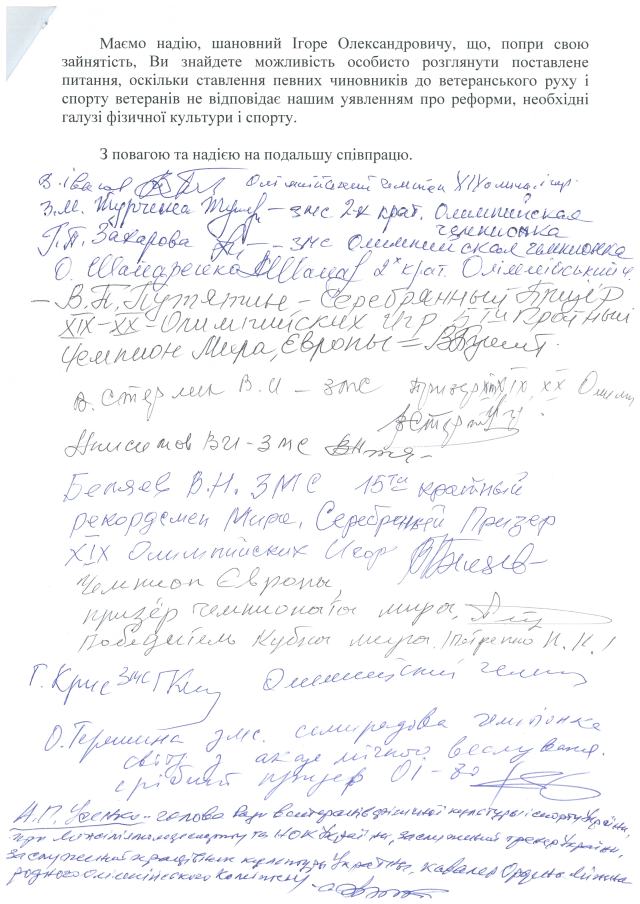 Маємо надію, шановний Ігоре Олександровичу, що, попри свою
зайнятість, Ви знайдете можливість особисто розглянути поставлене
питання, оскільки ставлення певних чиновників до ветеранського руху і
спорту ветеранів не відповідає нашим уявленням про реформи, необхідні
галузі фізичної культури і спорту.
З повагою та надією на подальшу співпрацю.
В. Іванов Олімпійський чемпіон XIX
З.М. Турчина – змс 2-х крат. Олимпийская
чемпионка
Г.П. Захарова – змс Олимпийская чемпионка
О. Шандренко 2х крат. Олімпійський ч.
– В.П. Путятин – Серебрянный Призёр
XIX–XX – Олимпийских Игр 5ти Кратный
Чемпион Мира, Європы =
В. И – змс призер XIX, XX Олимп
Анисимов ВИ – змс
Беляев В.Н. ЗМС 15ти кратный
рекордсмен Мира, Серебренный Призер
XIX Олимпийских Игор
Чемпион Європы,
призёр чемпионата мира,
Победитель Кубка мира.
Г. Крис змс Олимпийский чемпи
О. Терешина змс. семиразова чемпіонка
світу з академічного веслування.
срібний призер ОІ – 80
А.П. – голова Ради ветеранів фізичної культури і спорту України,
при та НОК України, заслужений тренер України,
заслужений працівник культури України, кавалер Ордена Міжна
родного олімпійського Комітету